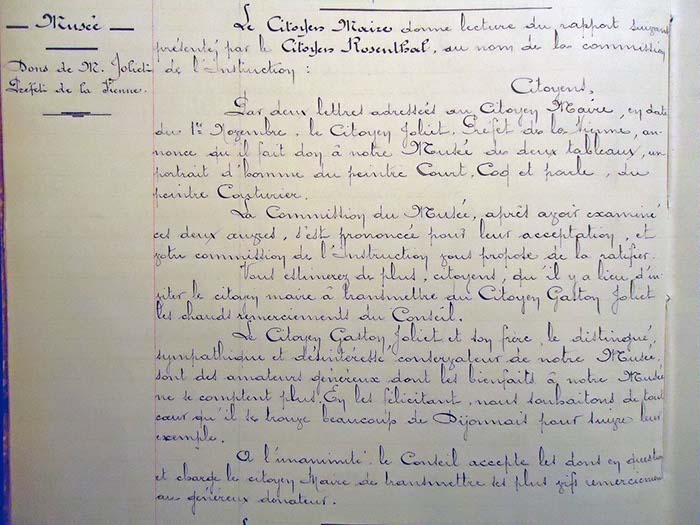 — Musée —
Dons de M. Joliet
Préfet de la Vienne.
Le Citoyen Maire donne lecture du rapport suivant
présenté par le Citoyen Rosenthal, au nom de la commission
de l'Instruction :
Citoyens,
Par deux lettres adressées au Citoyen Maire, en date
du 1er Novembre, le Citoyen Joliet, Préfet de la Vienne, an-
nonce qu'il fait don à notre Musée de deux tableaux, un
portrait d'homme du peintre Court, Coq et poule, du
peintre Couturier.
La Commission du Musée, après avoir examiné
ces deux œuvres, s'est prononcée pour leur acceptation, et
votre commission de l'Instruction vous propose de la ratifier.
Vous estimerez de plus, citoyens, qu'il y a lieu d'in-
viter le citoyen maire à transmettre au Citoyen Gaston Joliet
les chauds remerciements du Conseil.
Le Citoyen Gaston Joliet et son frère, le distingué,
sympathique et désintéressé conservateur de notre Musée,
sont des amateurs généreux dont les bienfaits à notre Musée
ne se comptent plus. En les félicitant, nous souhaitons de tout
cœur qu'il se trouve beaucoup de Dijonnais pour suivre leur
exemple.
A l'unanimité, le Conseil accepte les dons en question
et charge le citoyen Maire de transmettre ses plus vifs remerciements
au généreux donateur.